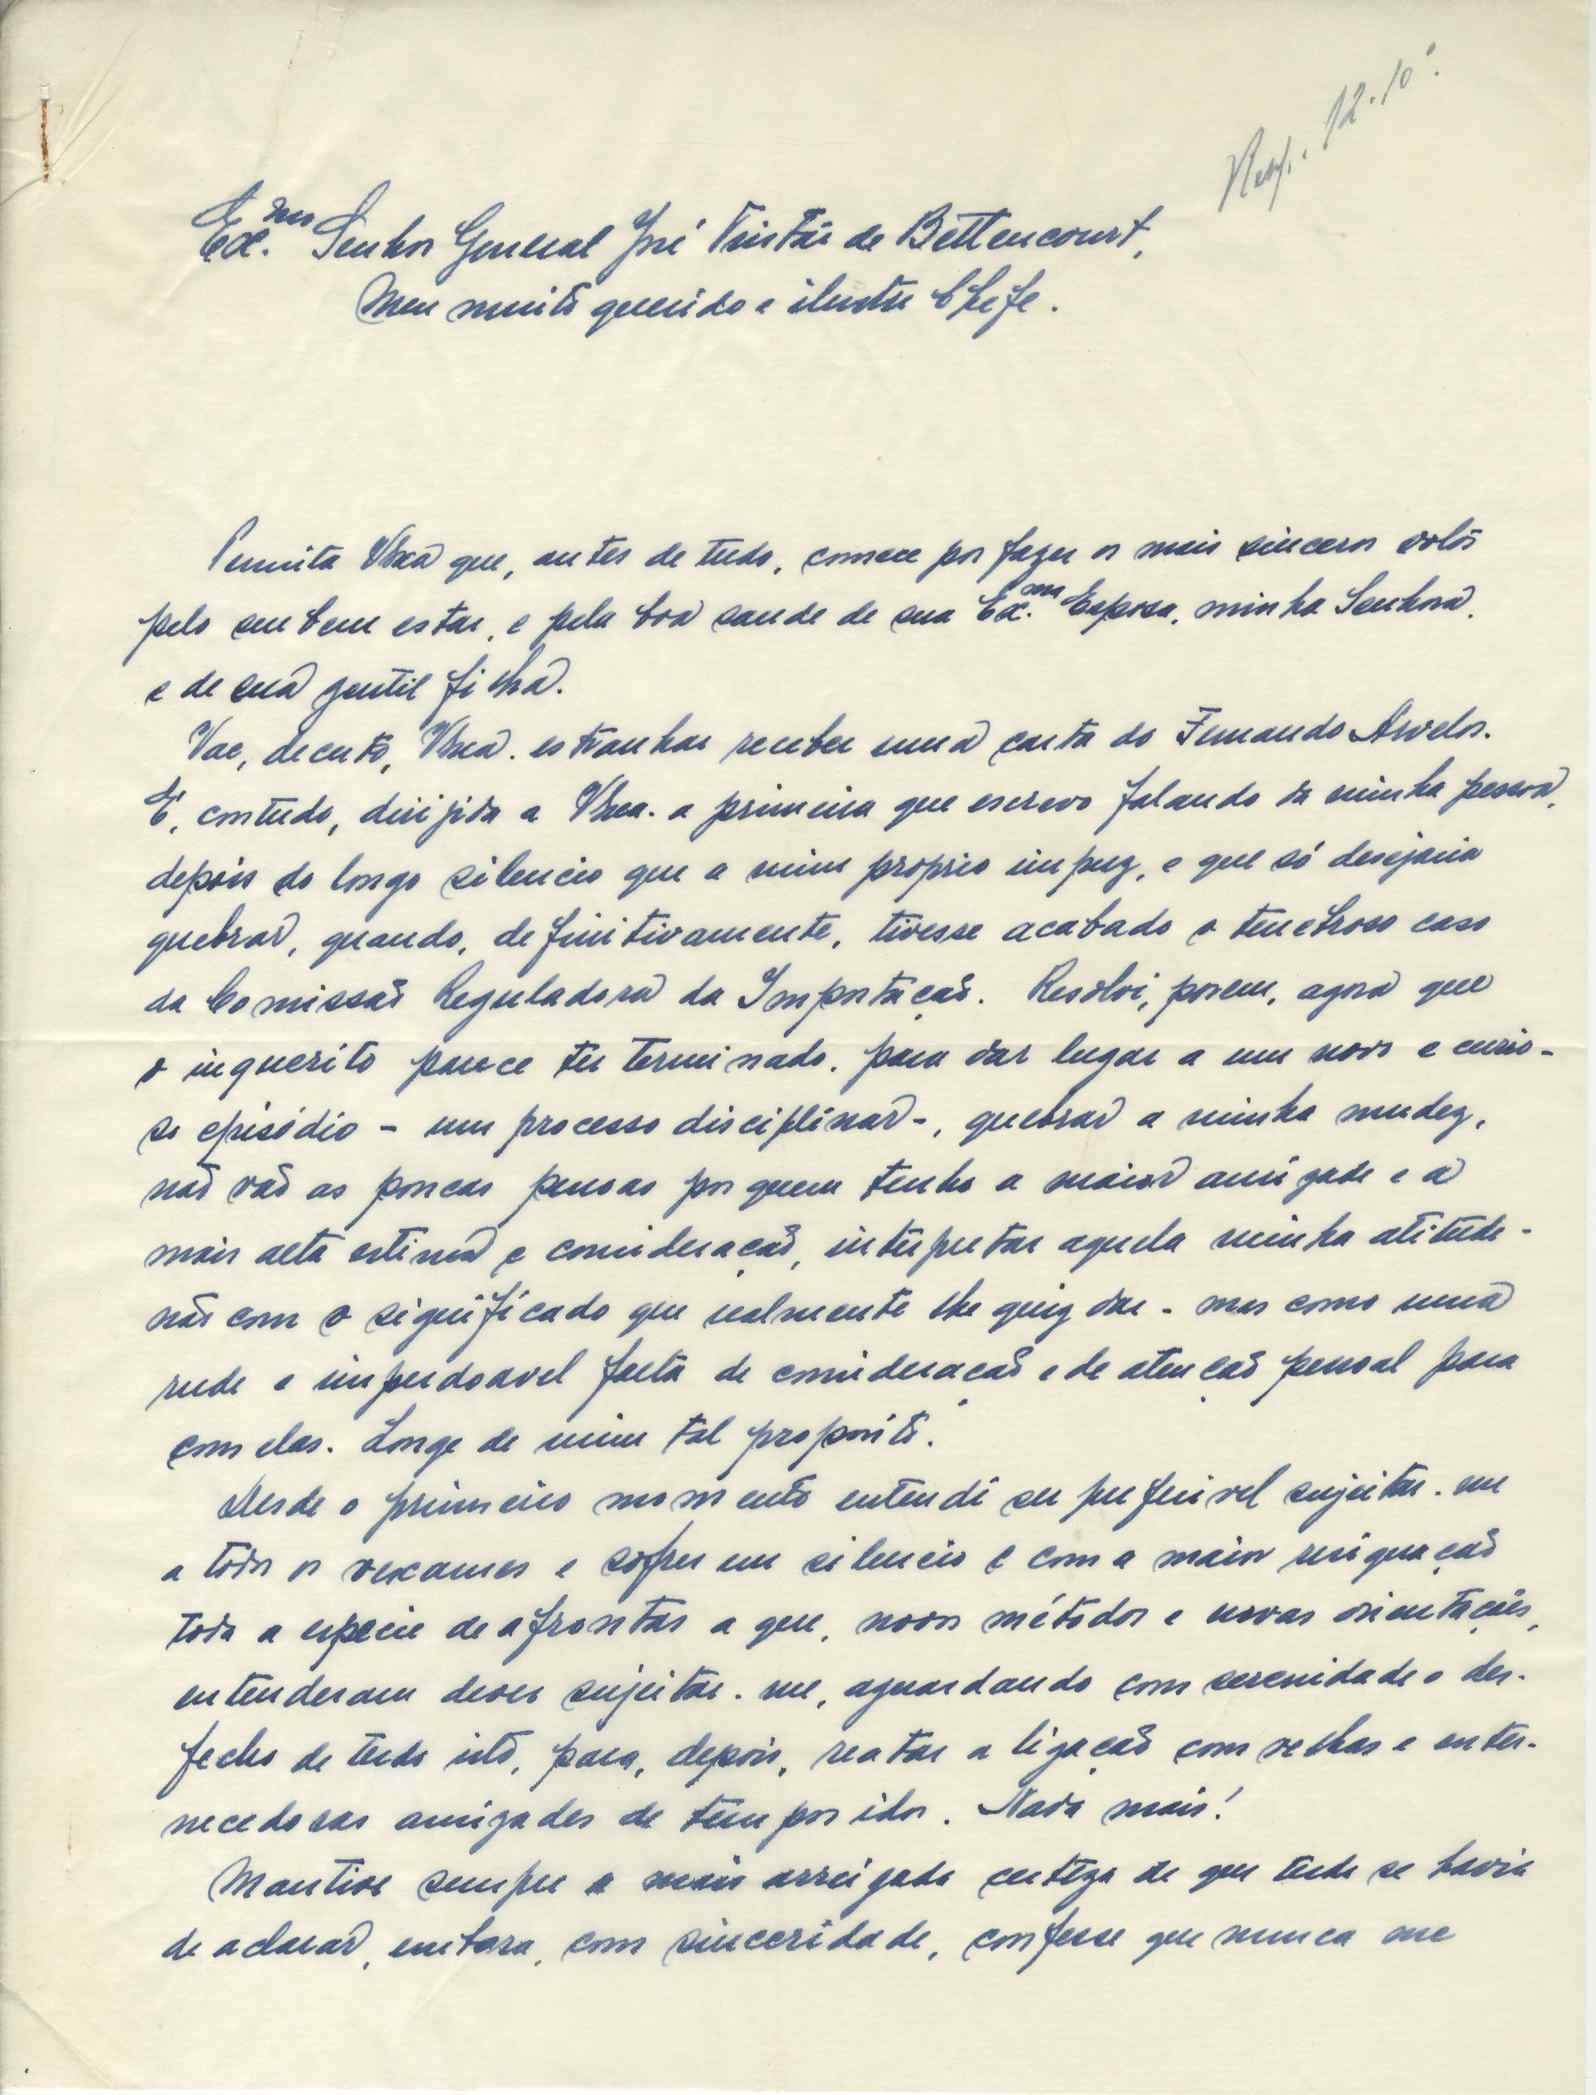 Resp. 12.10.
Ex.mo Senhor General José Tristão de Bettencourt,
Meu muito querido e ilustre Chefe.
Permita VExa que, antes de tudo, comece por fazer os mais sinceros votos
pelo seu bem estar, e pela boa saude de sua Ex.ma Esposa, minha Senhora,
e de sua gentil filha.
Vae, decerto, VExa. estranhar receber uma carta do Fernando Arvelos.
É, contudo, dirijida a VExa. a primeira que escrevo falando da minha pessoa,
depois do longo silencio que a mim proprio impuz, e que só desejaria
quebrar, quando, definitivamente, tivesse acabado o tenebroso caso
da Comissão Reguladora da Importação. Resolvi, porem, agora que
o inquerito parece ter terminado, para dar lugar a um novo e curio-
so episódio - um processo disciplinar -, quebrar a minha mudez,
não vão as poucas pessoas por quem tenho a maior amizade e a
mais alta estima e consideração, interpretar aquela minha atitude -
não com o significado que realmente lhe quiz dar - mas como uma
rude e imperdoavel falta de consideração e de atenção pessoal para
com elas. Longe de mim tal proposito.
Desde o primeiro momento entendi ser preferivel sujeitar-me
a todos os vexames e sofrer em silencio e com a maior resignação
toda a especie de afrontas a que, novos métodos e novas orientações,
entenderam dever sujeitar-me, aguardando com serenidade o des-
fecho de tudo isto, para, depois, reatar a ligação com velhas e enter-
necedoras amizades de tempos idos. Nada mais!
Mantive sempre a mais arreigada certeza de que tudo se havia
de aclarar, embora, com sinceridade, confesse que nunca me